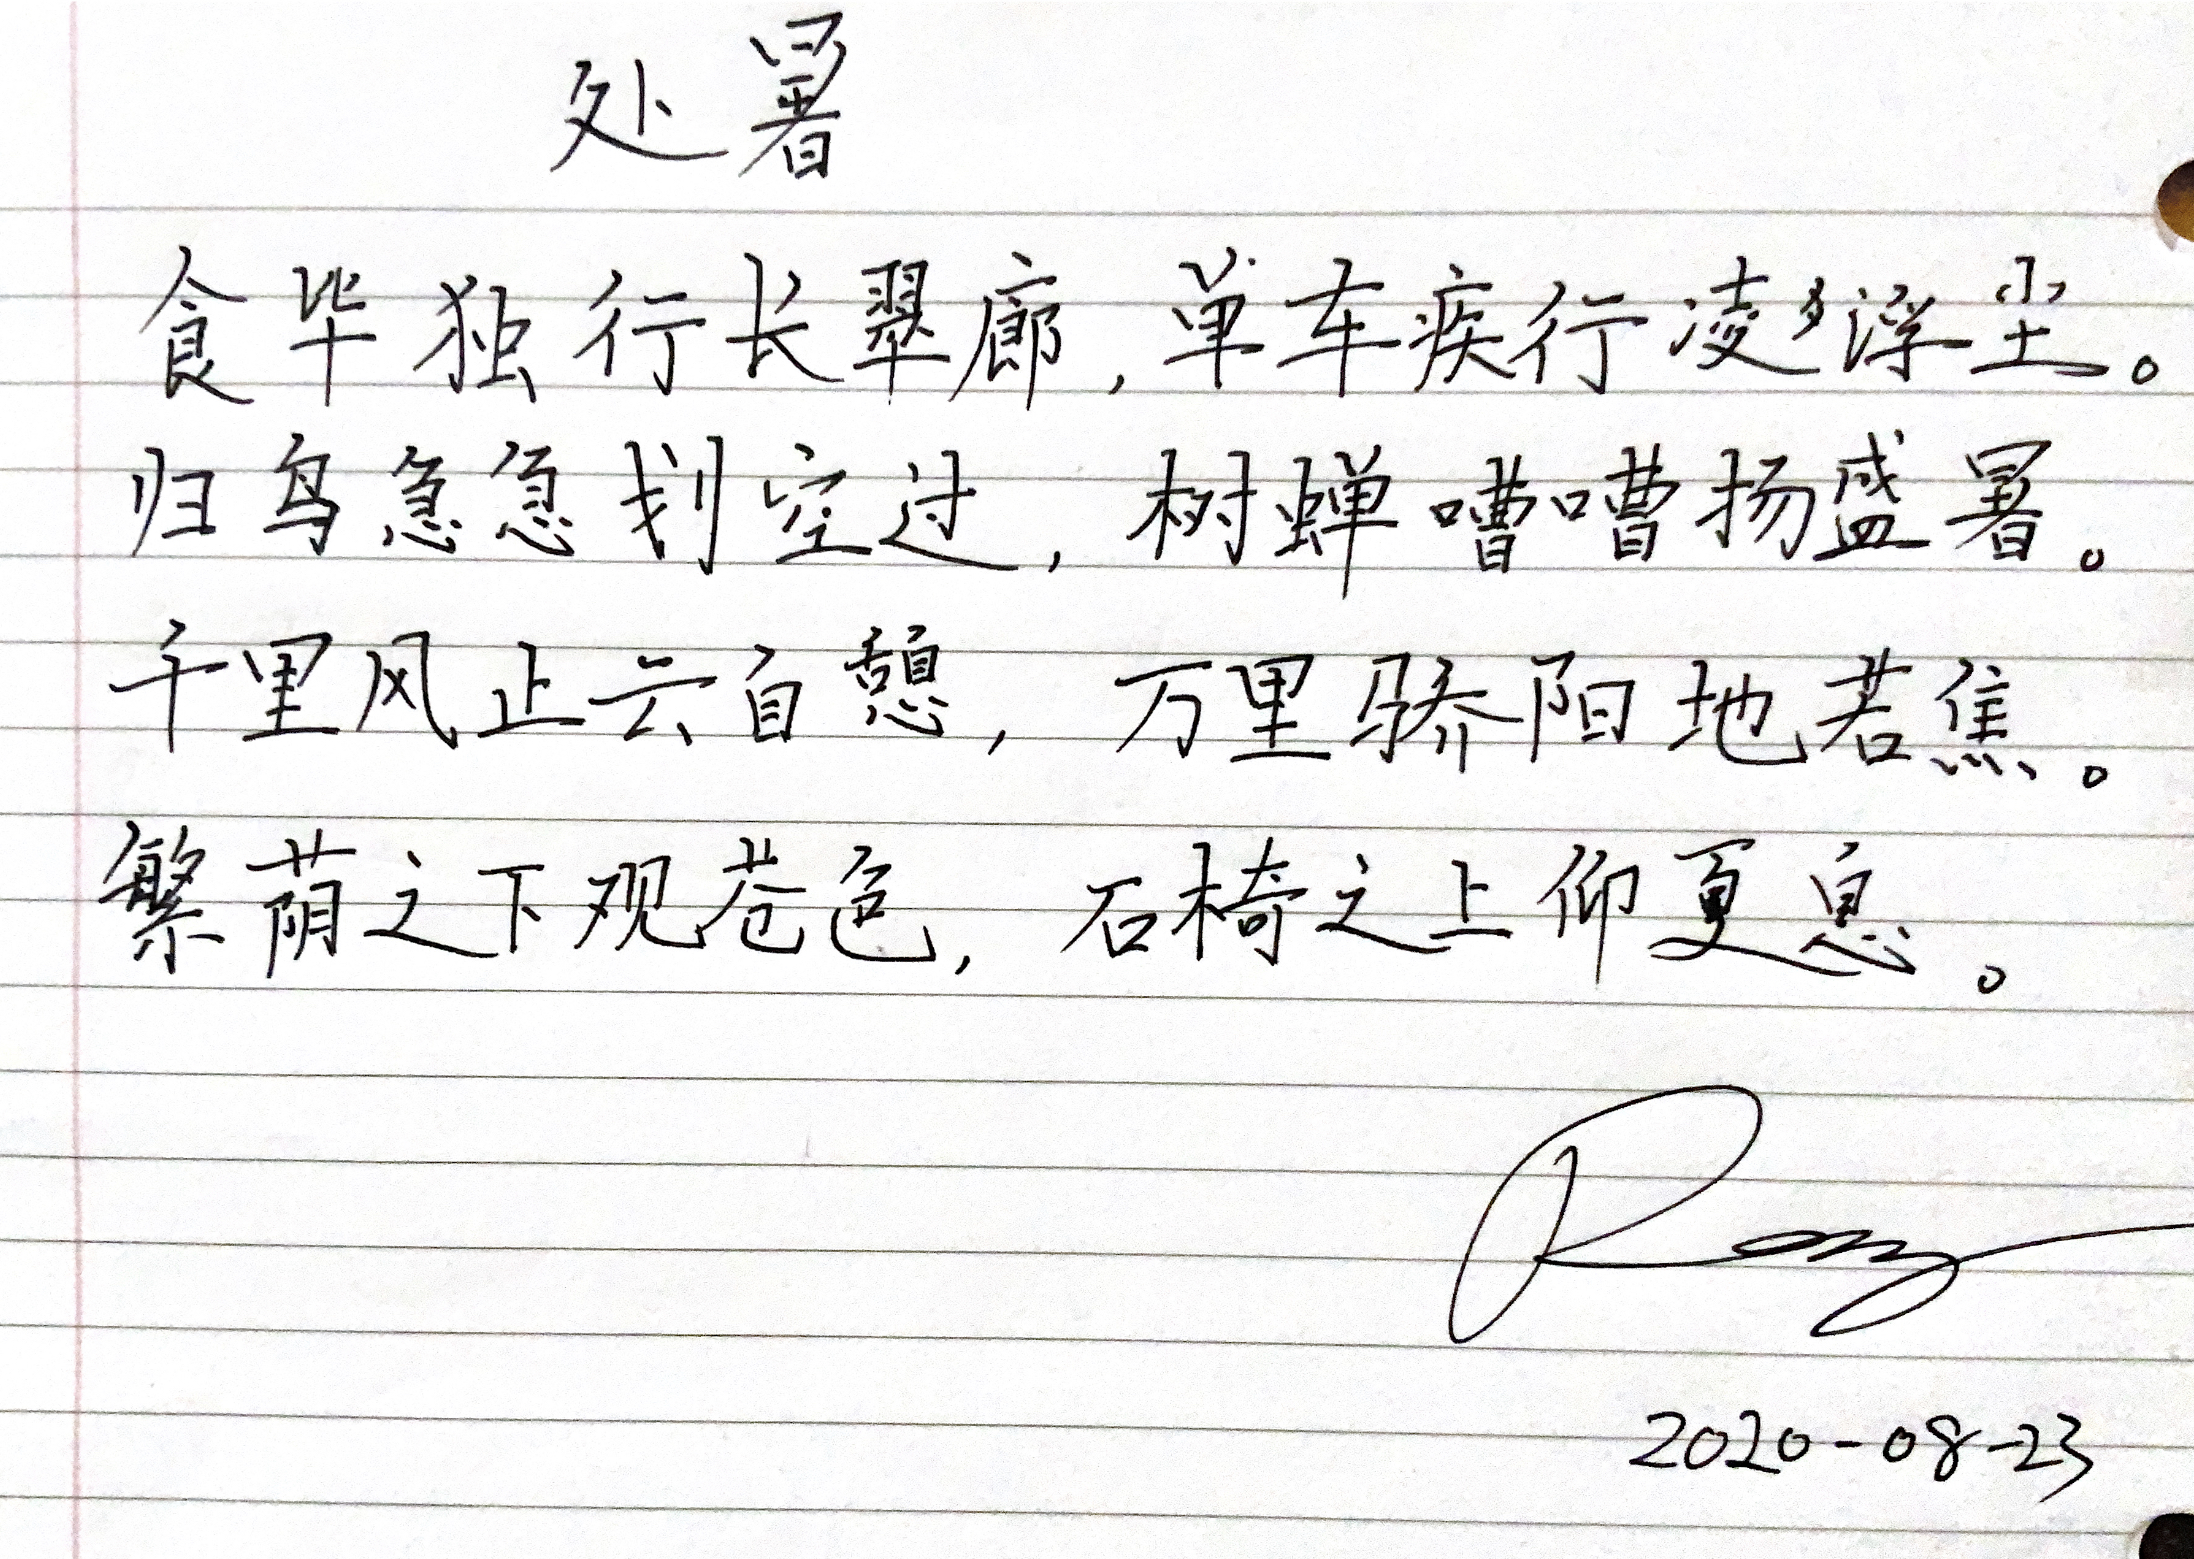 处暑
食毕独行长翠廊，单车疾行凌浮尘。
归鸟急急划空过，树蝉嘈嘈扬盛暑。
千里风止云自憩，万里骄阳地若焦。
繁荫之下观苍色，石椅之上仰夏息。
Ray
2020-08-23